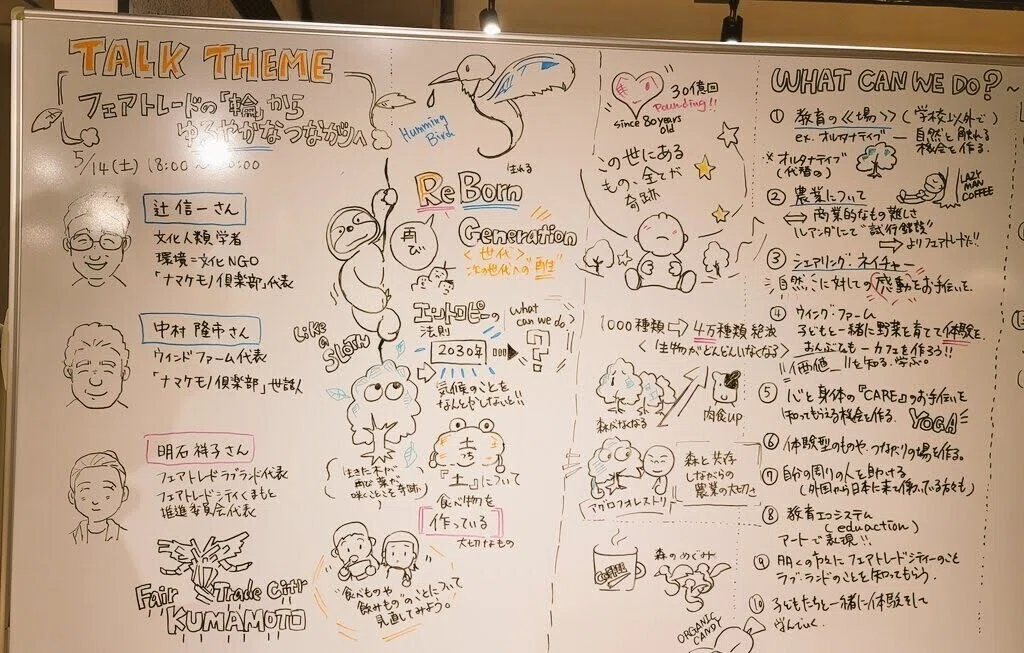 TALK THEME
フェアトレードの「輪」から
ゆるやかなつながりへ
5/14(土) 18:00〜20:00
辻 信一 さん
文化人類学者
環境=文化NGO
「ナマケモノ倶楽部」代表
中村 隆市 さん
ウィンドファーム代表
「ナマケモノ倶楽部」世話人
明石 祥子 さん
フェアトレードラブランド代表
フェアトレードシティくまもと
推進委員会代表
Fair Trade City
KUMAMOTO
Humming
Bird
生れる
Re Born
再び
Generation
<世代>
次の世代への"再生"
Like
a
SLOTH
エントロピーの
法則
what
can we do
?
2030年
気候のことを
なんとかしないと!!
生きた木が
再び葉が
咲くことこそ奇跡
土
っち
『土』について
食べ物を
作っている
大切なもの
"食べものや
飲みもの"のことについて
見直してみよう。
30億回
Pounding!!
since 80 years
old
この世にある
もの、全てが
奇跡
1000種類⇨4万種類 絶滅
<生物がどんどんいなくなる>
森がなくなる
肉食UP
アグロフォレストリー
森と共存
しながらの
農業の大切さ
COFFEE
森のめぐみ
ORGANIC
CANDY
WHAT CAN WE DO?
① 教育の《場》(学校以外で)
ex. オルタナティブ ― 自然と触れる
機会を作る。
※オルタナティブ
(代替の)
LAZY
MAN
COFFEE
② 農業について
⇔ 商業的なもの難しさ
ルアンダにて"試行錯誤"
⇨ よりフェアトレードだ!!
③ シェアリング・ネイチャー
自然に対しての感動をお手伝いを.
④ ウィンク・ファーム
子どもと一緒に野菜を育てて体験を.
おんぶでも―カフェを作ろう!!
"価値_"を知る.学ぶ。
⑤ 心と身体の『CARE』のお手伝いを
知ってもらえる機会を作る.
YOGA
⑥ 体験型のものや、つながりの場を作る。
⑦ 自分の周りの人を助ける
(外国から日本に来て働いている方も)
⑧ 教育エコシステム
(eduaction)
アートで表現!!
⑨ 多くの方にフェアトレードシティーのこと
ラブランドのことを知ってもらう.
⑩ 子どもたちと一緒に体験をして
学んでいく.